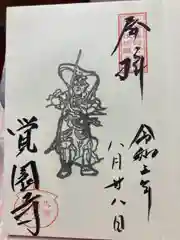 奉拝
令和五年
八月廿八日
覚園寺